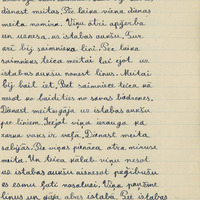 dienest meitas. Pēc laika viena dienas
meita nomira. Viņu otri apģērba
un iznesa uz istabas aukšu. Tur
arī bij saimnieka lini. Pēc laika
saimnieks teica meitai lai ejot uz
istabas aukšu nonest linus. Meitai
bij bail iet. Bet saimnieks teica kā
neiet un baidīties no savas biedrenes.
Dienest meita gāja uz istabas aukšu
pēc liniem. Ieejot viņa ierauga ka
zārka vāks ir vaļā. Dienast meita
sabijās. Pie viņas pienāca otra mirusē
meita. Un teica kālab viņu nesot
uz istabas aukšu aiznesot pagībušu
es esmu ļoti nosalusi. Viņa paņēme
linus un gāja abas istabā. Pie istabas